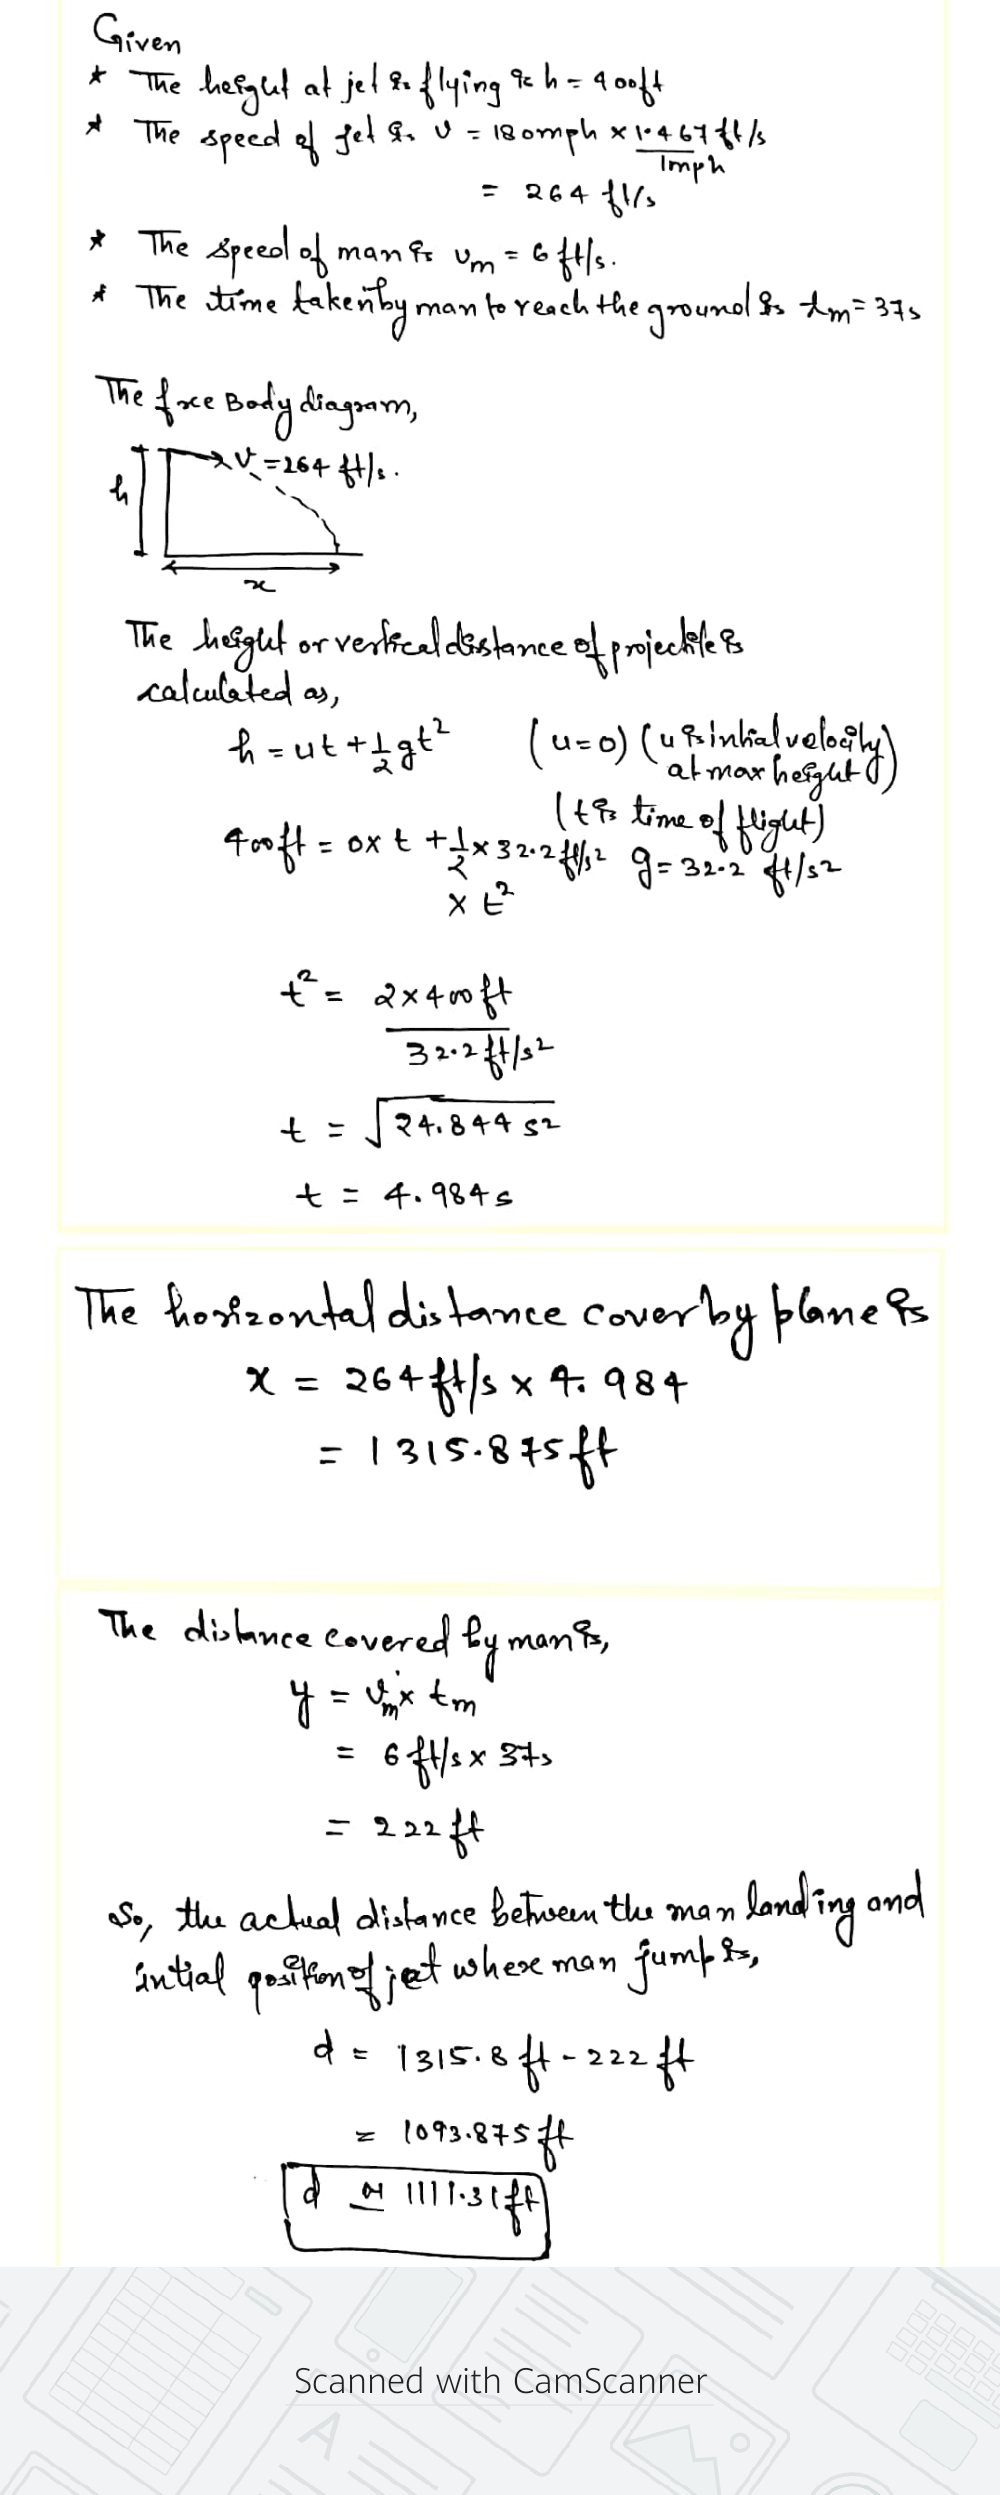 Given
* The height at jet is flying is h = 400ft
* The speed of jet is v = 180mph × 1.467ft/s
1mph
= 264 ft/s
* The speed of man is vm = 6 ft/s.
* The time taken by man to reach the ground is tm = 37s
The free Body diagram,
v = 264 ft/s.
h
x
The height or vertical distance of projectile is
calculated as,
h = ut + 1/2 gt² (u=0) (u is intial velocity
at max height)
(t is time of flight)
400ft = 0× t + 1/2 × 32.2ft/s² g = 32.2 ft/s²
× t²
t² = 2×400ft
32.2ft/s²
t = √24.844 s²
t = 4.984s
The horizontal distance cover by plane is
x = 264ft/s × 4.984
= 1315.875ft
The distance covered by man is,
y = vm × tm
= 6 ft/s × 37s
= 222ft
So, the actual distance between the man landing and
intial position of jet where man jump is,
d = 1315.8 ft - 222 ft
= 1093.875ft
d ≃ 1111.31ft
Scanned with CamScanner